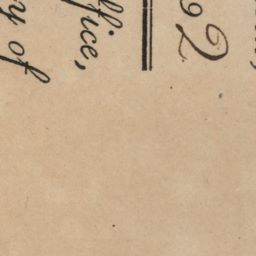 92
ffice,
y of